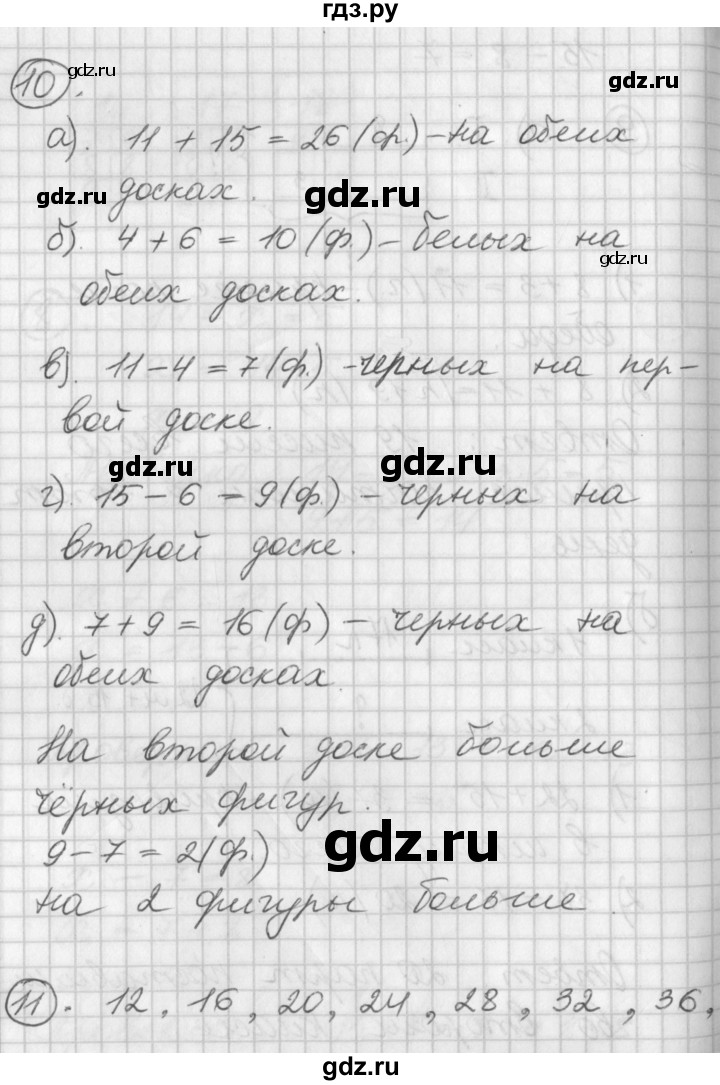 гдз.ру
10.
gdz.ru
gdz.ru
а). 11 + 15 = 26 (ф.) – на обеих
gdz.ru
gdz.ru
досках.
б). 4 + 6 = 10 (ф.) – белых на
gdz.ru
обеих досках.
в). 11 – 4 = 7 (ф.) – черных на пер-
вой доске.
gdz.ru
gdz.ru
г). 15 – 6 = 9 (ф.) – черных на
второй доске.
д). 7 + 9 = 16 (ф) – черных на
обеих досках.
На второй доске больше
чёрных фигур.
9 – 7 = 2 (ф.)
gdz.ru
на 2 фигуры больше.
11. 12, 16, 20, 24, 28, 32, 36,
gdz.ru